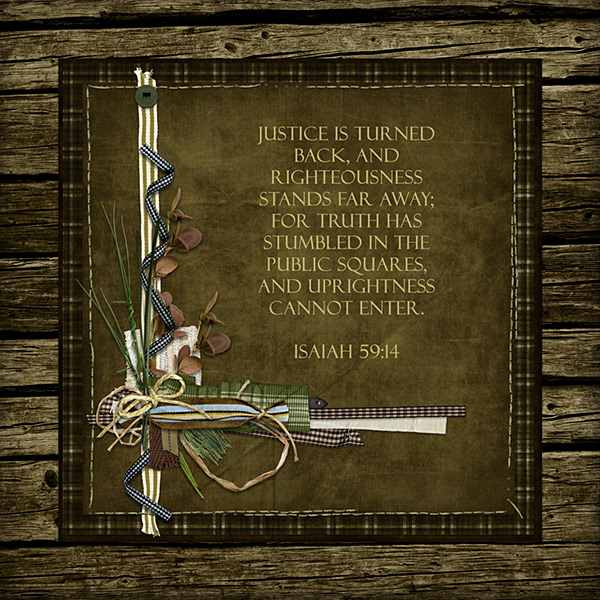 JUSTICE IS TURNED
BACK, AND
RIGHTEOUSNESS
STANDS FAR AWAY;
FOR TRUTH HAS
STUMBLED IN THE
PUBLIC SQUARES,
AND UPRIGHTNESS
CANNOT ENTER.
ISAIAH 59:14